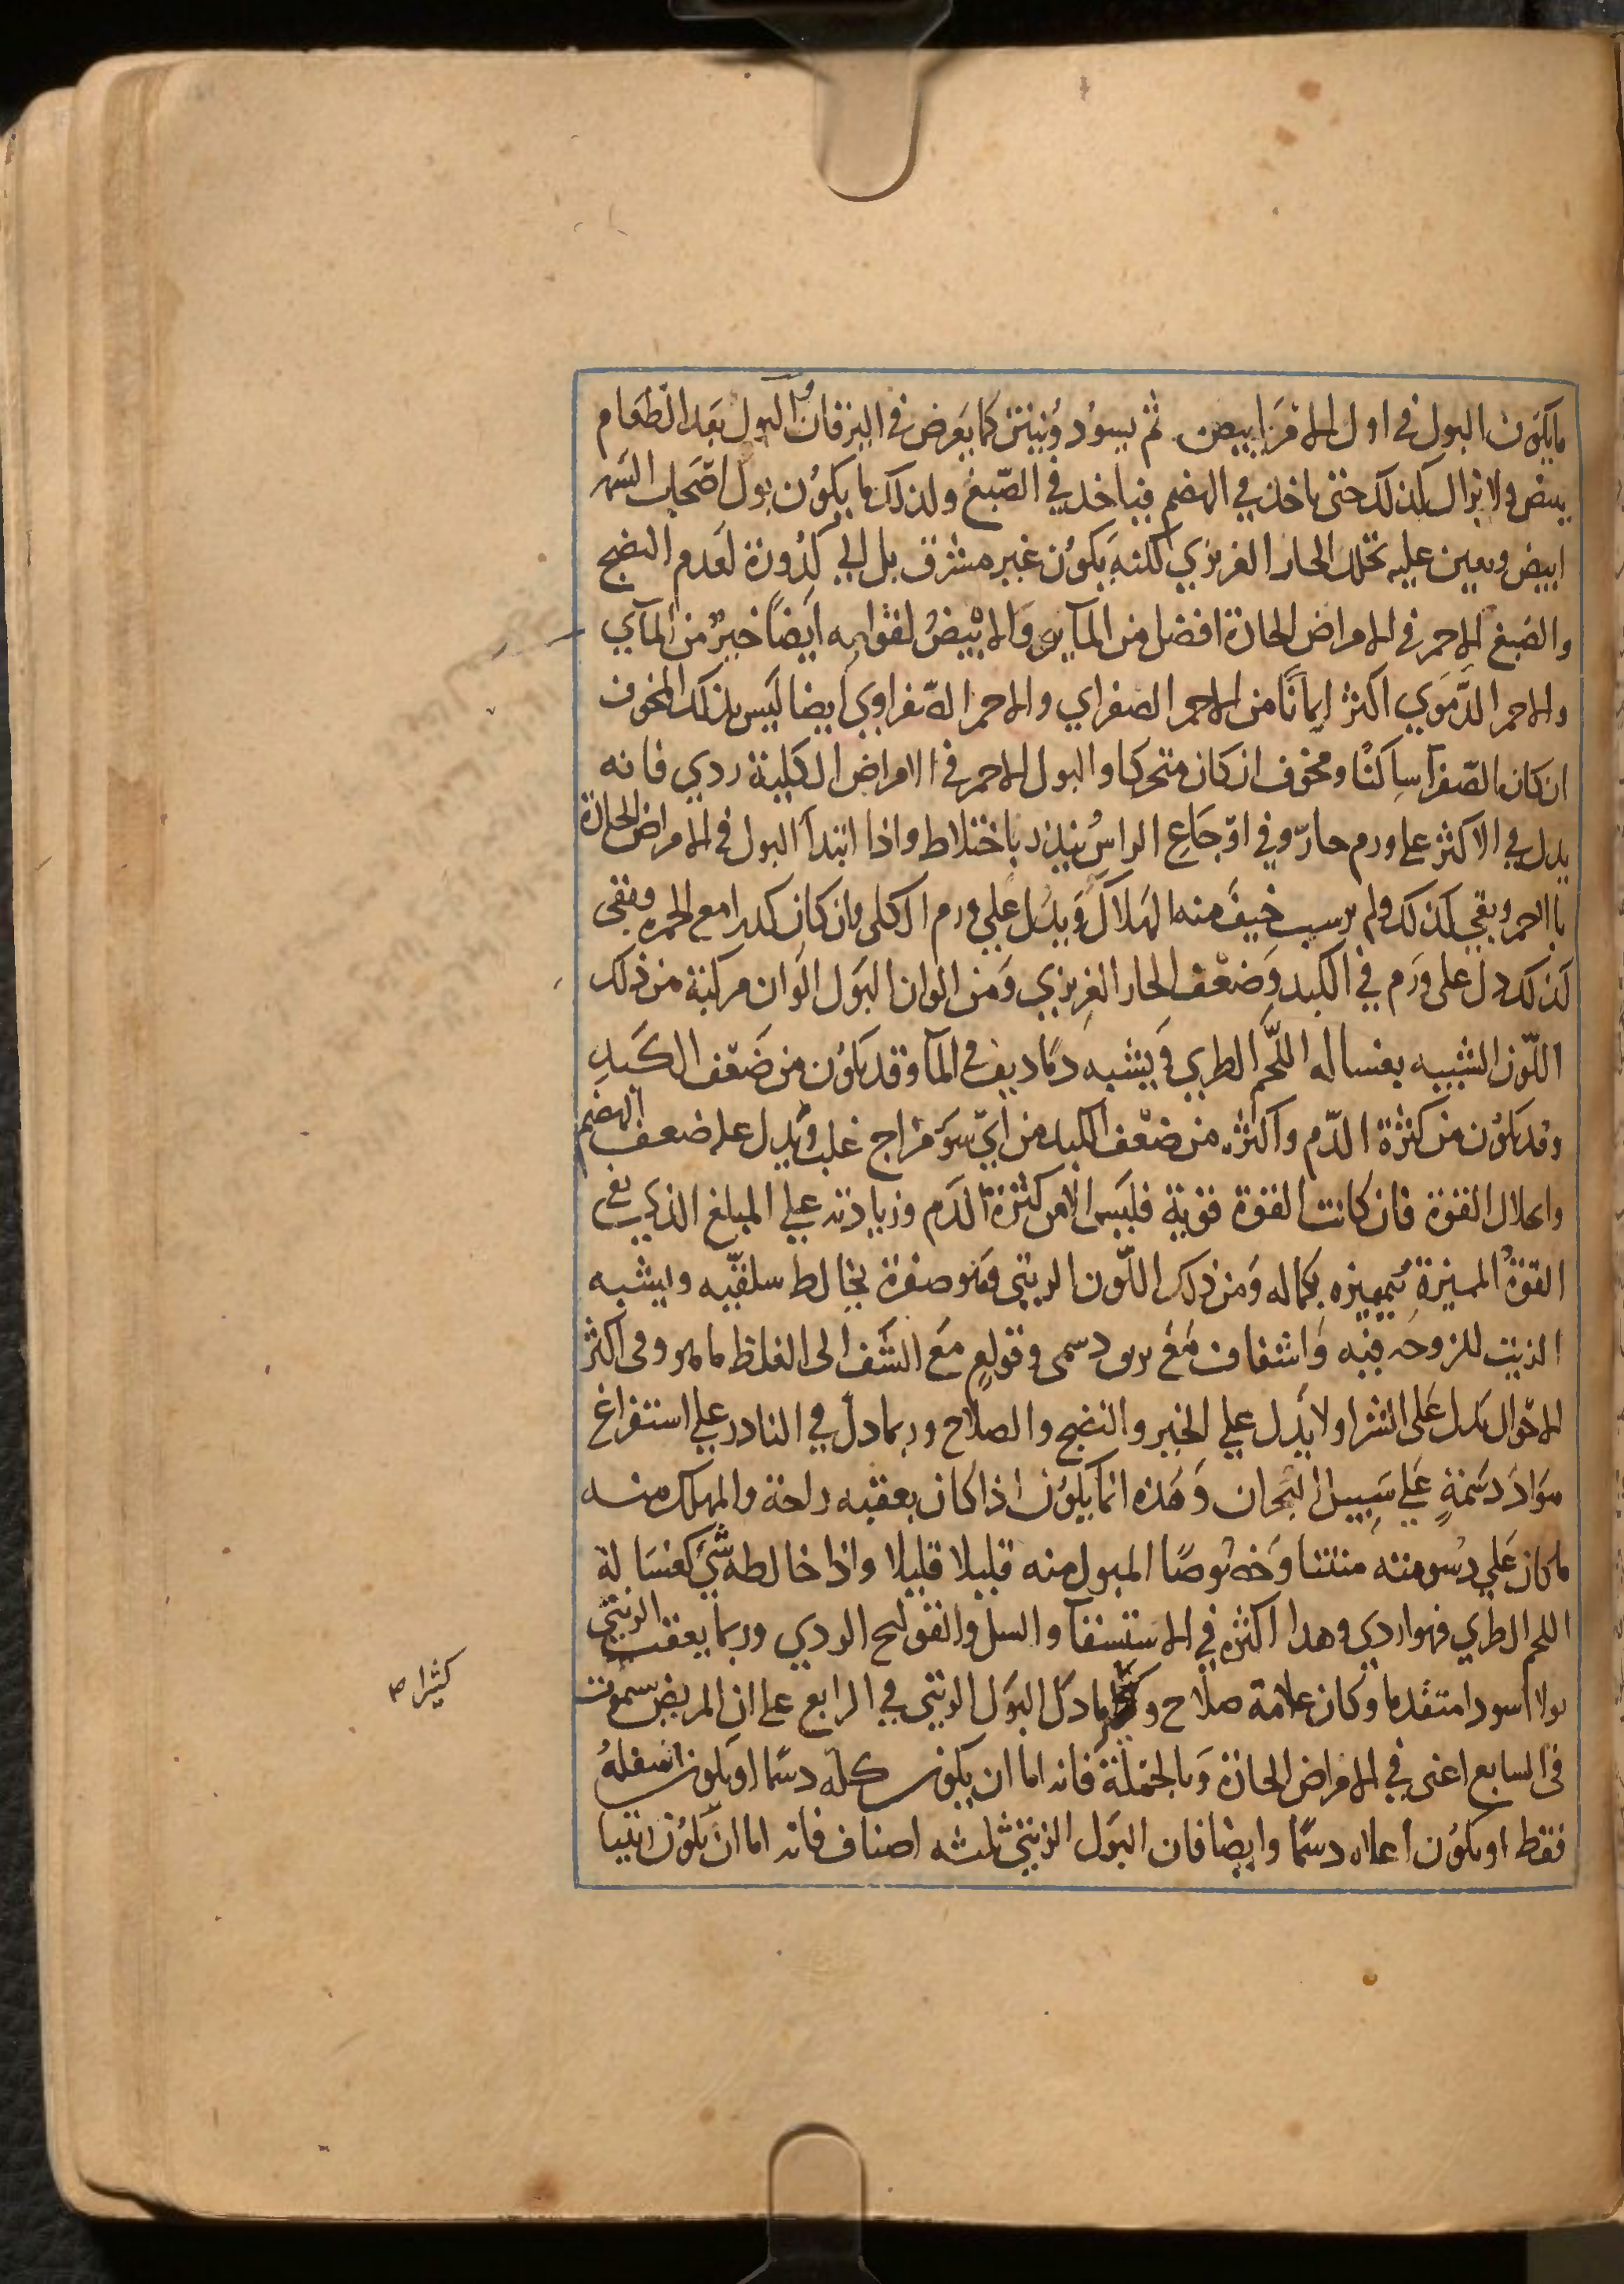 ما يكون البول في اول الامر ابيض ثم يسود وينتن كما يعرض في اليرقان والبول بعد الطعام
يبيض ولا يزال كذلك حتى ياخذ في الهضم فياخذ في الصبغ ولذلك ما يكون بول اصحاب السهر
ابيض ويعين عليه تحلل الحار الغريزي لكنه يكون غير مشرق بل الى كدورة لعدم النضج
والصبغ الاحمر في الامراض الحادة افضل من المآيي والابيض لقوامه ايضا خير من المآي
والاحمر الدموي اكثر امانا من الاحمر الصفراي والاحمر الصفراوي ايضا ليس بذلك المخوف
ان كان الصفرآ ساكنا ومخوف ان كان متحركا والبول الاحمر في الامراض الكلية ردي فانه
يدل في الاكثر على ورم حار وفي اوجاع الراس ينذر باختلاط واذا ابتدأ البول في الامراض الحادة
بالاحمر وبقي كذلك ولم يرسب خيف منه الهلاك ويدل على ورم الكلى وان كان كدرا مع الحمره وبقى
كذلك دل على ورم في الكبد وضعف الحار الغريزي ومن الوان البول الوان مركبة من ذلك
اللون الشبيه بغساله اللحم الطري ويشبه دما ديف في المآ وقد يكون من ضعف الكبد
وقد يكون من كثرة الدم واكثره من ضعف الكبد من اي سوء مزاج غلب ويدل على ضعف الهضم
وانحلال القوة فان كانت القوة قوية فليس الا من كثرة الدم وزيادته على المبلغ الذي يفي
القوة المميزة بتمييزه بكماله ومن ذلك اللون الزيتي وهو صفرة يخالط سلقيه ويشبه
الزيت للزوجه فيه واشفاف مع بريق دسمى وقوام مع الشف الى الغلظ ما هو وفى اكثر
الاحوال يدل على الشر ولا يدل على الخير والنضج والصلاح وربما دل في النادر على استفراغ
مواد دسمة على سبيل البحران وهذه انما يكون اذا كان يعقبه راحة والمهلك منه
ما كان على دسومته منتنا وخصوصا المبول منه قليلا قليلا واذا خالطه شي كغسالة
اللحم الطري فهو اردي وهذا اكثره في الاستسقآ والسل والقولنج الردي وربما يعقب الزيتي
بولا اسود متقدما وكان علامة صلاح وكثيرا ما دل البول الزيتي في الرابع على ان المريض سيموت
فى السابع اعنى في الامراض الحادة وبالجملة فانه اما ان يكون كله دسما او يكون اسفله
فقط او يكون اعلاه دسما وايضا فان البول الزيتي ثلثه اصناف فانه اما ان يكون زيتيا
كثيرا صح